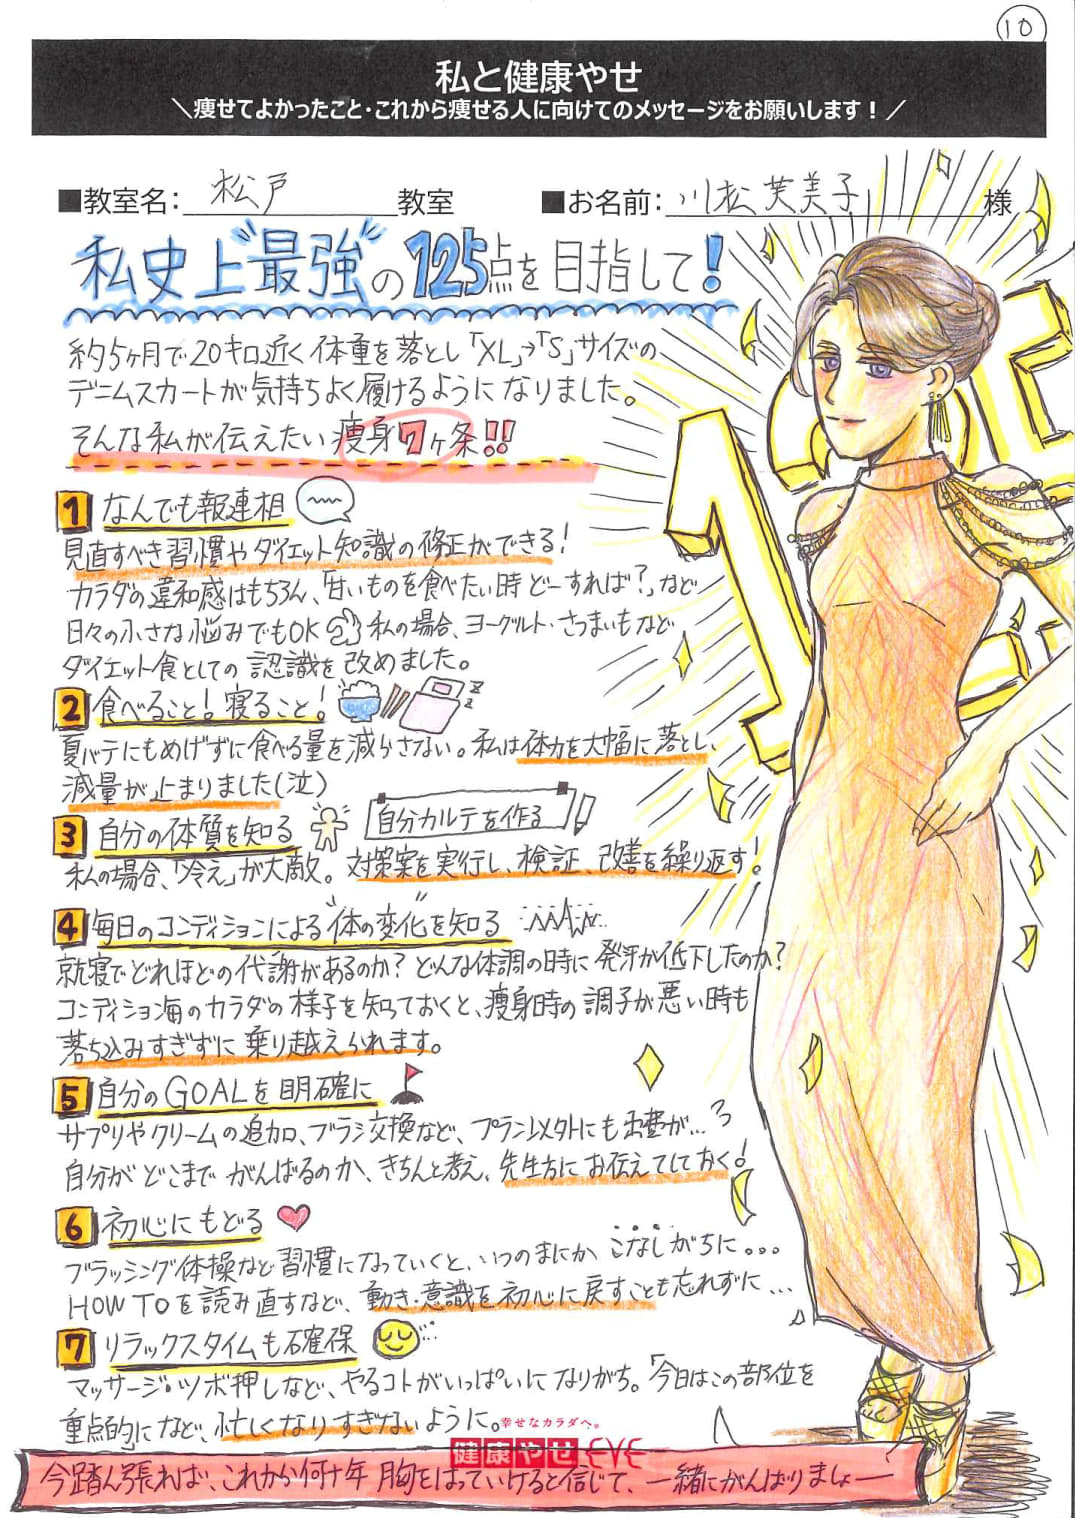 10
私と健康やせ
＼痩せてよかったこと・これから痩せる人に向けてのメッセージをお願いします！／
■教室名: 松戸 教室 ■お名前: 川松芙美子 様
私史上"最強"の125点を目指して!
約5ヶ月で20キロ近く体重を落とし「XL」→「S」サイズの
デニムスカートが気持ちよく履けるようになりました。
そんな私が伝えたい痩身7ヶ条!!
1 なんでも報連相
見直すべき習慣やダイエット知識の修正ができる!
カラダの違和感はもちろん、「甘いものを食べたい時どーすれば?」など
日々の小さな悩みでもOK 私の場合、ヨーグルト・さつまいもなど
ダイエット食としての認識を改めました。
2 食べること! 寝ること!
夏バテにもめげずに食べる量を減らさない。私は体力を大幅に落とし、
減量が止まりました(泣)
3 自分の体質を知る 自分カルテを作る
私の場合、「冷え」が大敵。対策案を実行し、検証、改善を繰り返す!
4 毎日のコンディションによる"体の変化"を知る
就寝でどれほどの代謝があるのか? どんな体調の時に発汗が低下したのか?
コンディション毎のカラダの様子を知っておくと、痩身時の調子が悪い時も
落ち込みすぎずに乗り越えられます。
5 自分のGOALを明確に
サプリやクリームの追加、ブラシ交換など、プラン以外にも出費が...
自分がどこまでがんばるのか、きちんと考え、先生方にお伝えしておく!
6 初心にもどる
ブラッシング体操など習慣になっていくと、いつのまにかこなしがちに。。。
HOW TOを読み直すなど、動き・意識を初心に戻すことも忘れずに...
7 リラックスタイムも確保
マッサージ・ツボ押しなど、やるコトがいっぱいになりがち。「今日はこの部位を
重点的」になど、忙しくなりすぎないように。
幸せなカラダへ。
健康やせ EVE
今踏ん張れば、これから何十年胸をはっていけると信じて、一緒にがんばりましょー